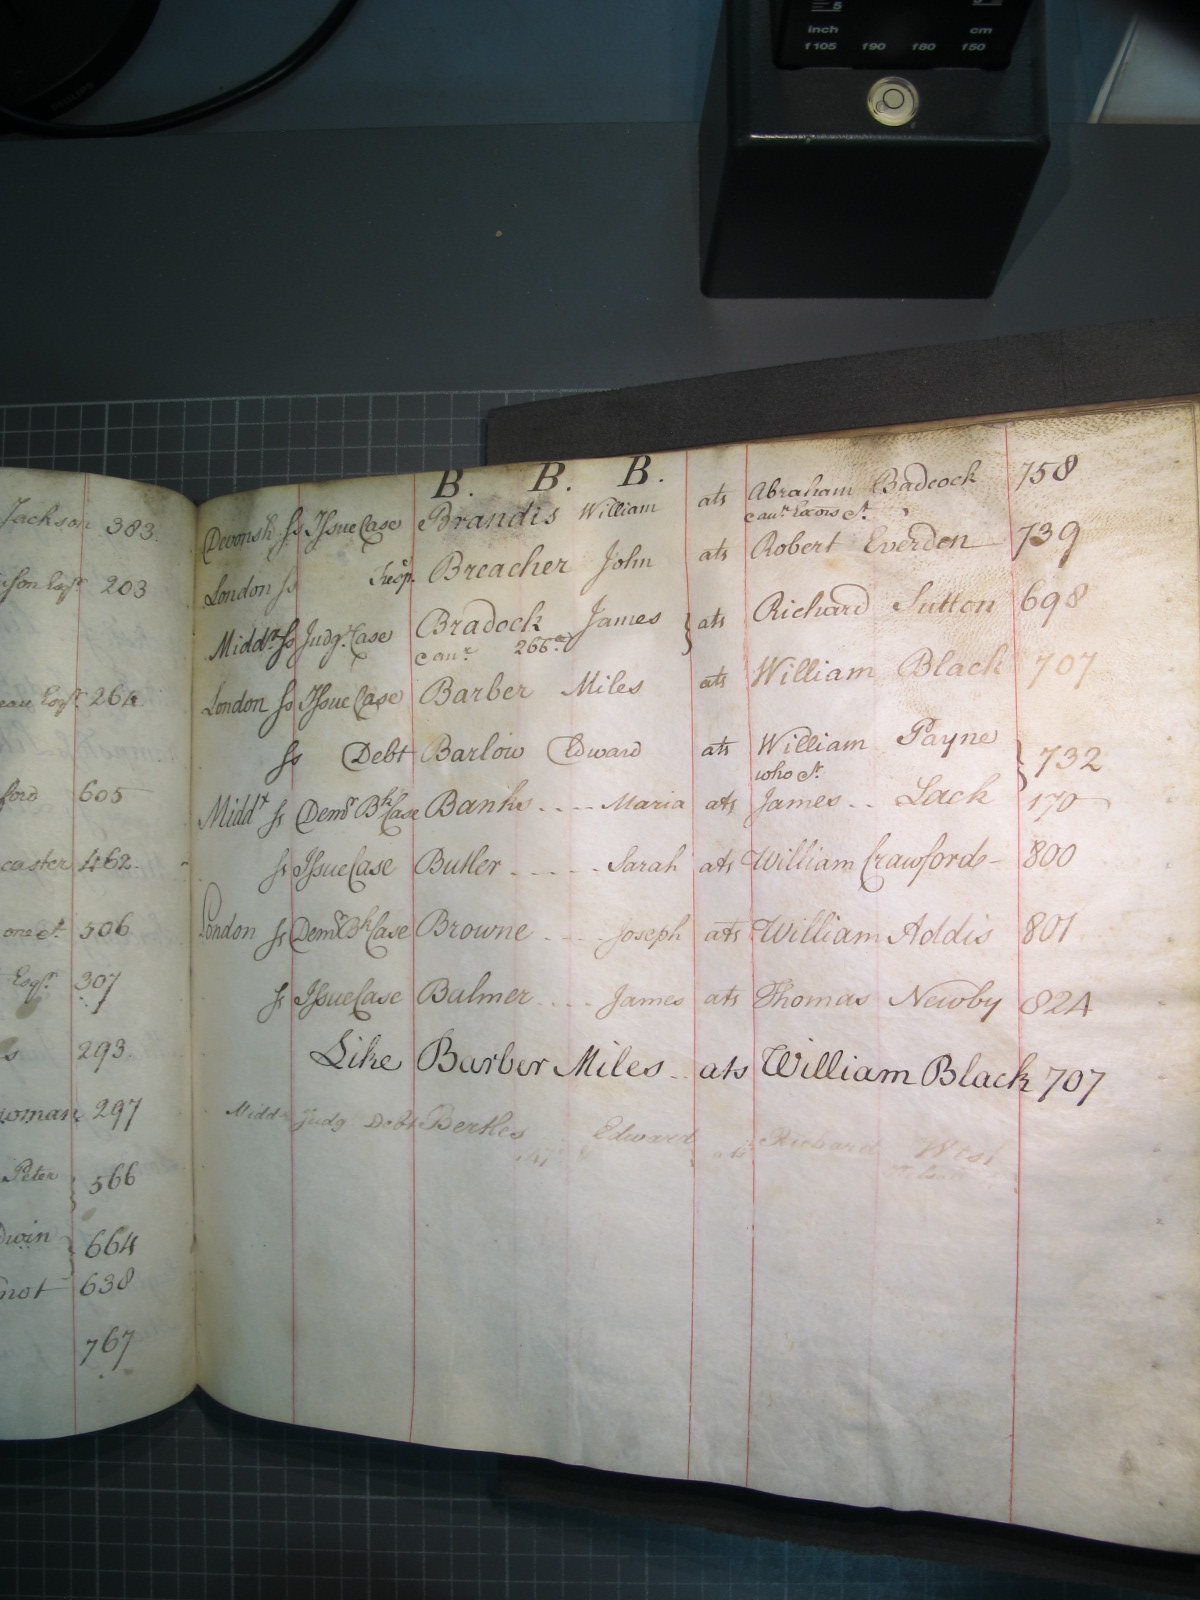 5
inch cm
f105 f90 f80 f50
PHILIPS
Jackson 383.
Esqr. 203
Esqr. 264
ford 605
caster 462.
one &c. 506
Esqr. 307
s 293.
woman 297
Peter 566
dwin 664
not 638
767
B. B. B.
Devonsh. ss Issue Case Brandis William ats Abraham Badcock 758
&c.
London ss Tresp. Breacher John ats Robert Everden 739
Middx ss Judgt. Case Bradock James ats Richard Sutton 698
266
London ss Issue Case Barber Miles ats William Black 707
ss Debt Barlow Edward ats William Payne 732
who &c.
Middx ss Demr Bk Case Banks .... Maria ats James .. Lack 170
ss Issue Case Butler ..... Sarah ats William Crawford - 800
London ss Demr Bk Case Browne .... Joseph ats William Addis 801
ss Issue Case Balmer .... James ats Thomas Newby 824
Like Barber Miles .. ats William Black 707
Middx Judg. Debt Bertles Edward ats Richard West